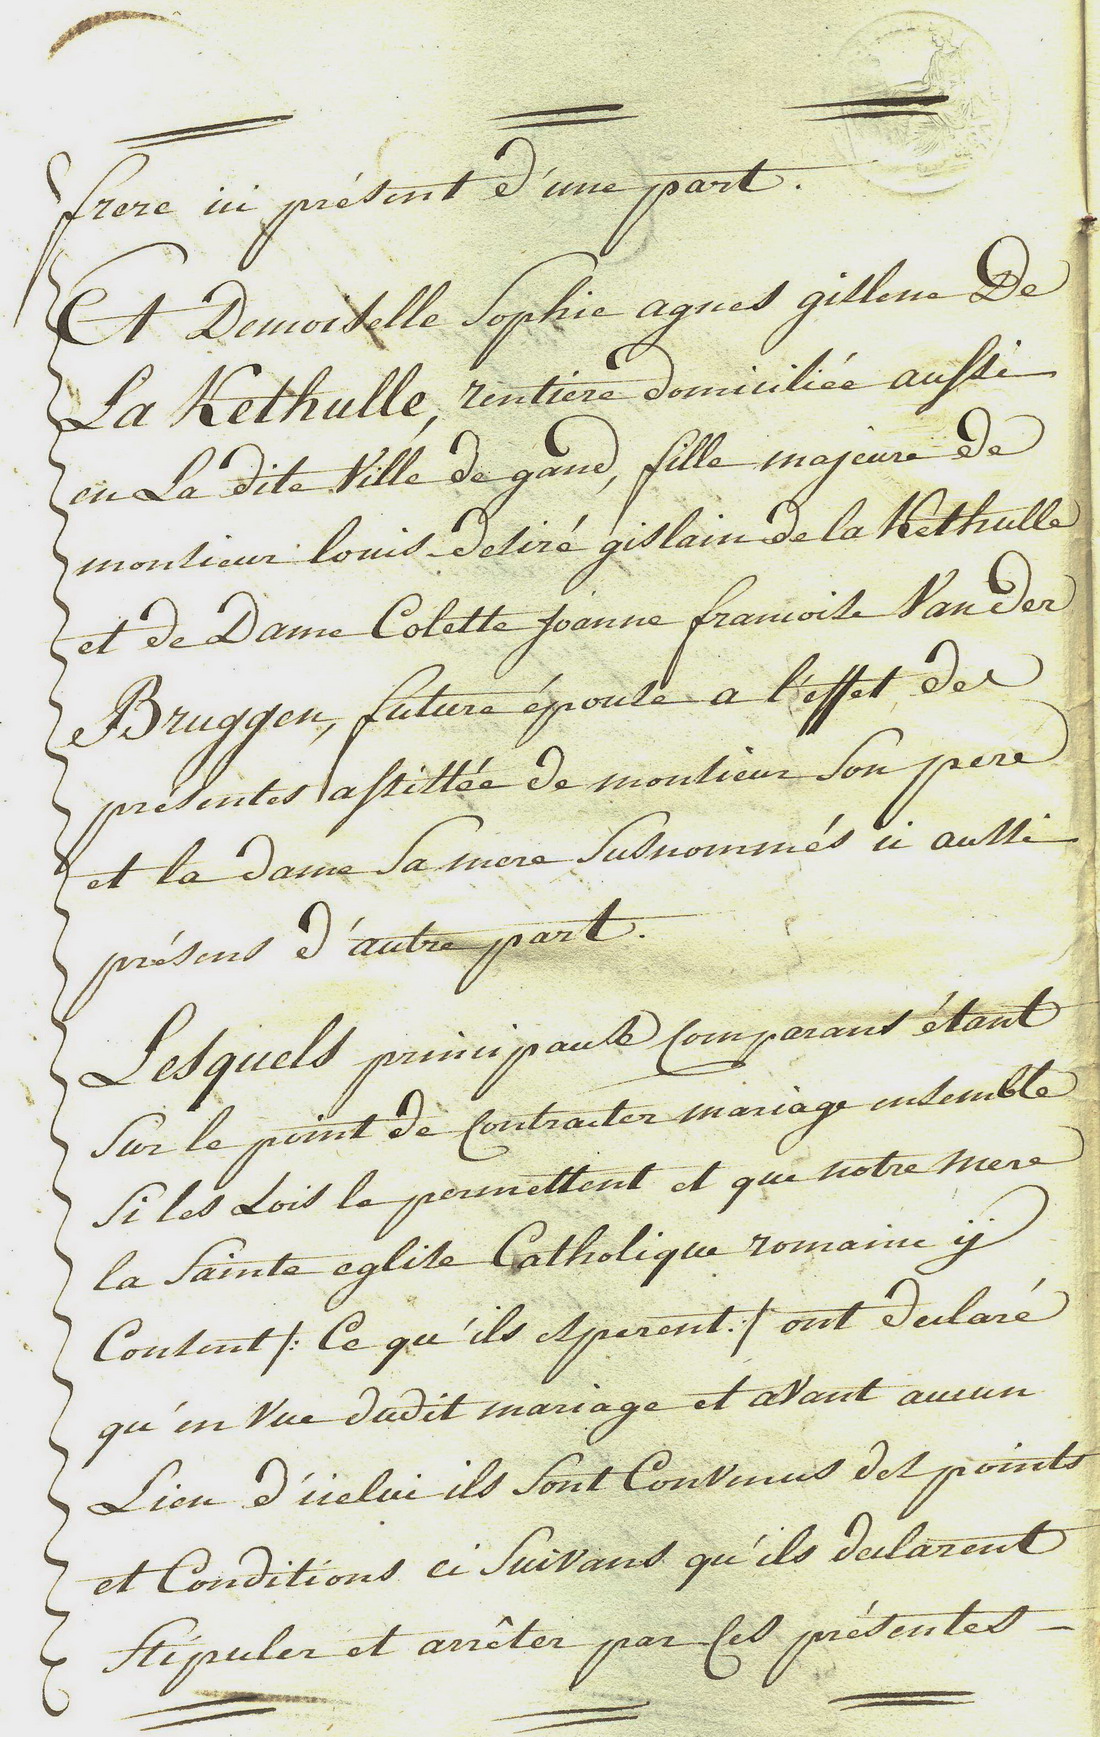 frere ici présent d'une part.
Et Demoiselle Sophie agnes gislene De
La Kethulle, rentiere domiciliée aussi
en La dite Ville de gand, fille majeure de
monsieur louis desiré gislain de la Kethulle
et de Dame Colette joanne francoise Van der
Bruggen, future épouse a l'effet des
présentes assistée de monsieur Son pere
et la dame Sa mere Susnommés ici aussi
présens d'autre part.
Lesquels principaux Comparans étant
Sur le point de Contracter mariage ensemble
Si les Lois le permettent et que notre mere
la Sainte eglise Catholique romaine ij
Consent /: Ce qu'ils esperent :/ ont declaré
qu'en Vue dudit mariage et aVant aucun
Lien d'icelui ils Sont ConVenus des points
et Conditions ci SuiVans qu'ils declarent
Stipuler et arrêter par Ces présentes –